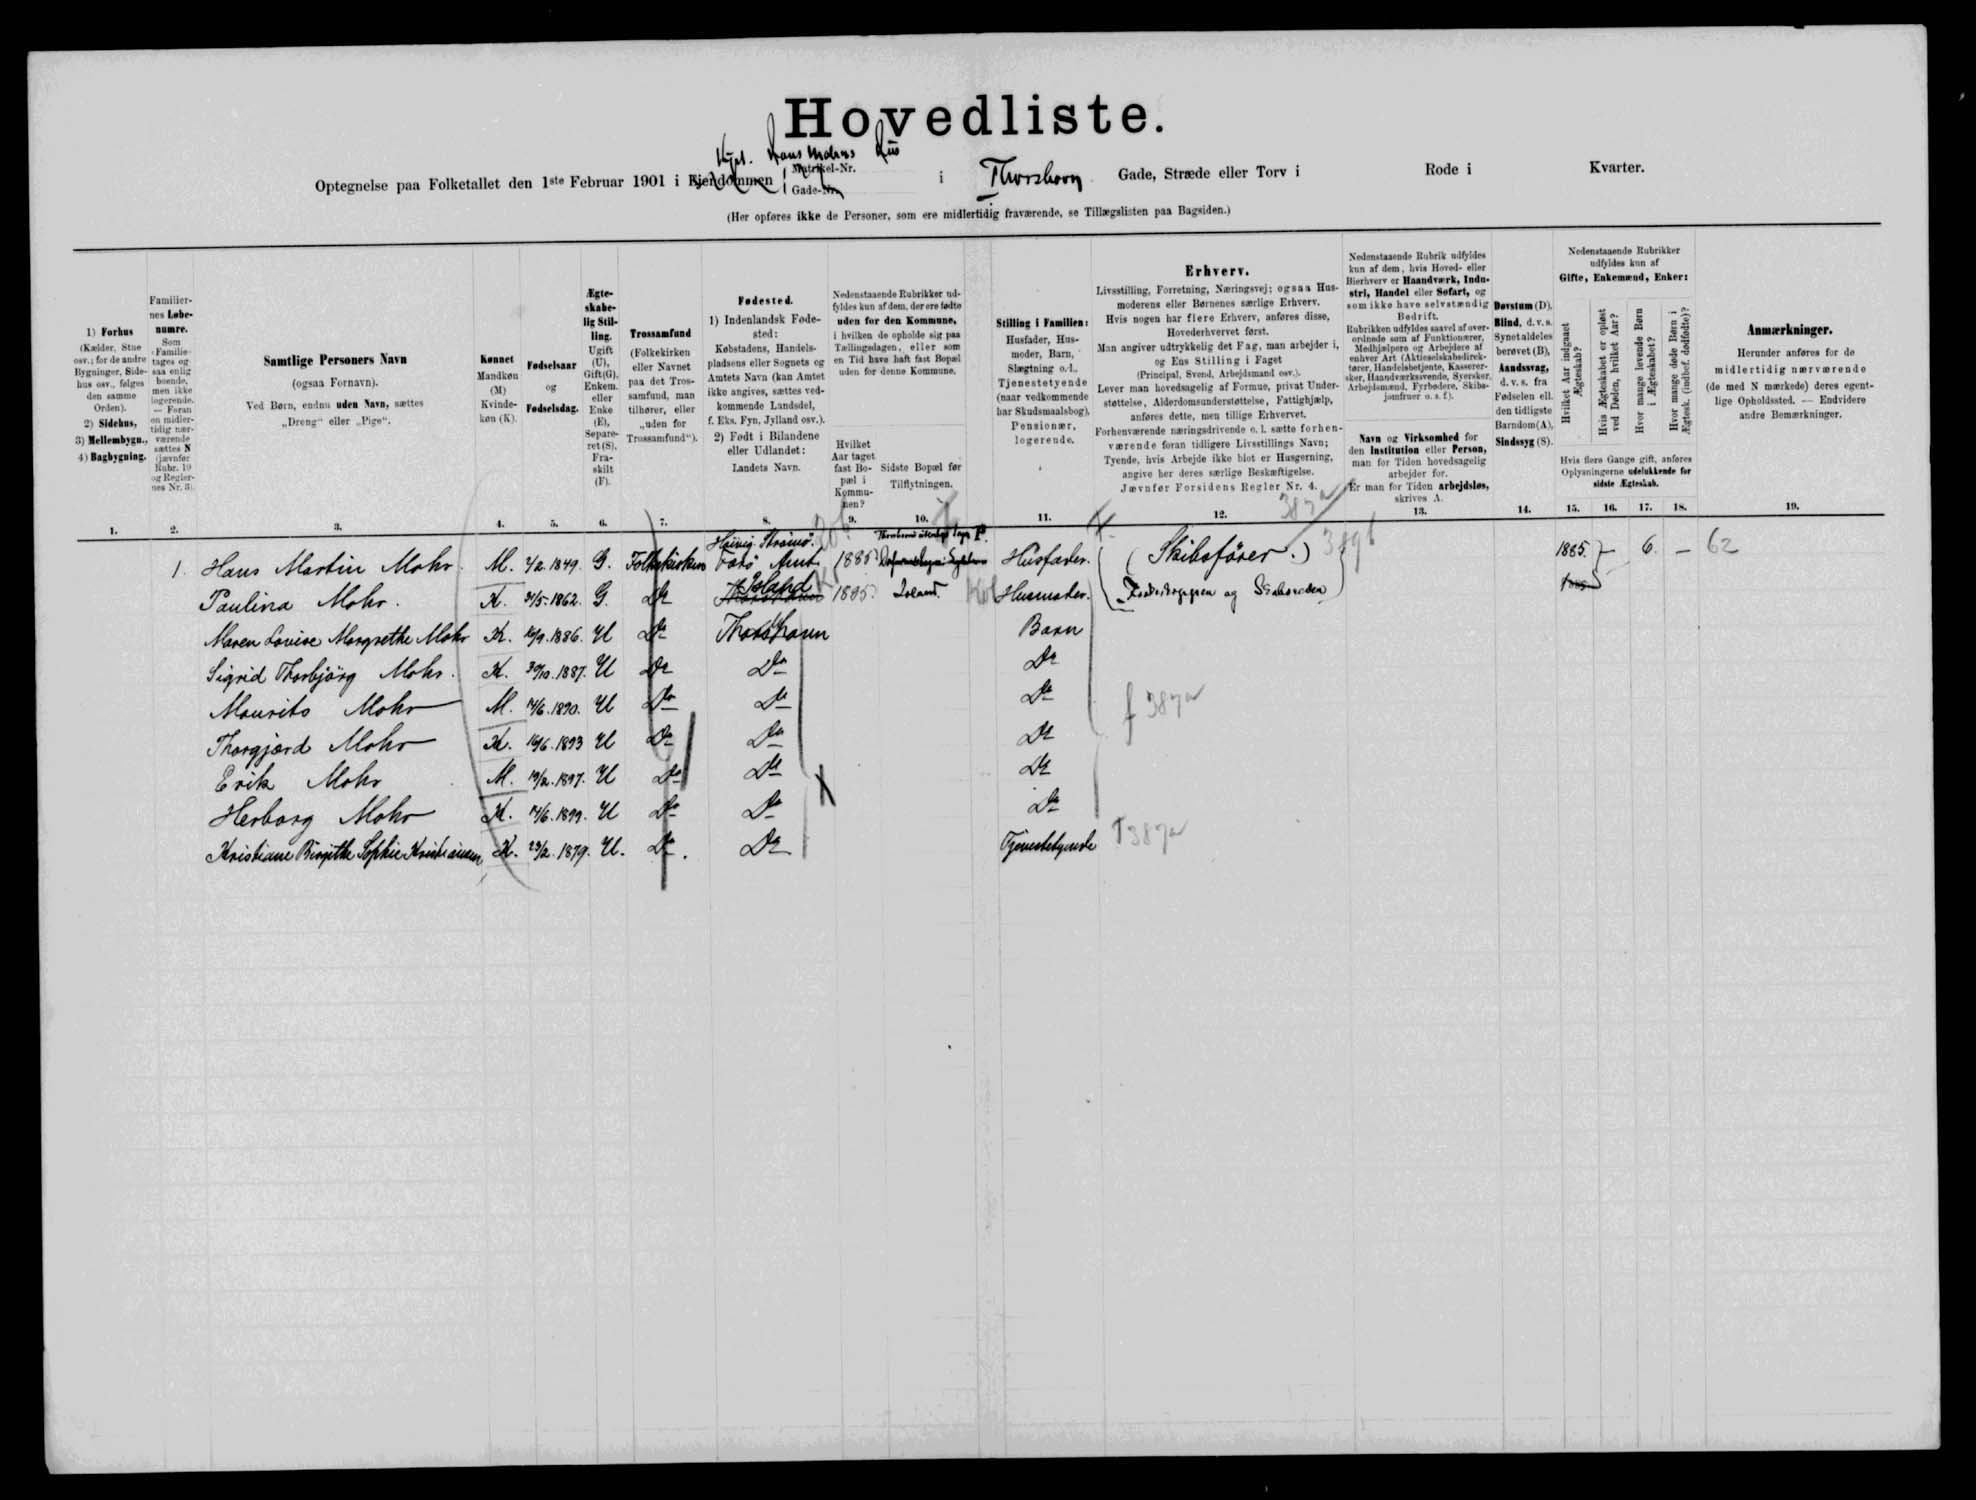 Hovedliste.
Kjpt. Hans Mohrs Hus
Optegnelse paa Folketallet den 1ste Februar 1901 i Ejendommen { Matrikel-Nr. Gade-Nr. i Thorshavn Gade, Stræde eller Torv i Rode i Kvarter.
(Her opføres ikke de Personer, som ere midlertidig fraværende, se Tillægslisten paa Bagsiden.)
1) Forhus
(Kælder, Stue
osv.; for de andre
Bygninger, Side-
hus osv., følges
den samme
Orden).
2) Sidehus,
3) Mellembygn.,
4) Bagbygning.
Familier-
nes Løbe-
numre.
Som
Familie
tages og-
saa enlig
boende,
men ikke
logerende.
— Foran
en midler-
tidig nær-
værende
sættes N
(jævnfør
Rubr. 19
og Regler-
nes Nr. 3).
Samtlige Personers Navn
(ogsaa Fornavn).
Ved Børn, endnu uden Navn, sættes
„Dreng“ eller „Pige“.
Kønnet
Mandkøn
(M)
Kvinde-
køn (K).
Fødselsaar
og
Fødselsdag.
Ægte-
skabe-
lig Stil-
ling.
Ugift
(U),
Gift(G),
Enkem.
eller
Enke
(E),
Separe-
ret (S),
Fra-
skilt
(F).
Trossamfund
(Folkekirken
eller Navnet
paa det Tros-
samfund, man
tilhører, eller
„uden for
Trossamfund“).
Fødested.
1) Indenlandsk Føde-
sted:
Købstadens, Handels-
pladsens eller Sognets og
Amtets Navn (kan Amtet
ikke angives, sættes ved-
kommende Landsdel,
f. Eks. Fyn, Jylland osv.).
2) Født i Bilandene
eller Udlandet:
Landets Navn.
Nedenstaaende Rubrikker ud-
fyldes kun af dem, der ere fødte
uden for den Kommune,
i hvilken de opholde sig paa
Tællingsdagen, eller som
en Tid have haft fast Bopæl
uden for denne Kommune.
Hvilket
Aar taget
fast Bo-
pæl i
Kommu-
nen?
Sidste Bopæl før
Tilflytningen.
Stilling i Familien:
Husfader, Hus-
moder, Barn,
Slægtning o.l.,
Tjenestetyende
(naar vedkommende
har Skudsmaalsbog),
Pensionær,
logerende.
Erhverv.
Livsstilling, Forretning, Næringsvej; ogsaa Hus-
moderens eller Børnenes særlige Erhverv.
Hvis nogen har flere Erhverv, anføres disse,
Hovederhvervet først.
Man angiver udtrykkelig det Fag, man arbejder i,
og Ens Stilling i Faget
(Principal, Svend, Arbejdsmand osv.).
Lever man hovedsagelig af Formue, privat Under-
støttelse, Alderdomsunderstøttelse, Fattighjælp,
anføres dette, men tillige Erhvervet.
Forhenværende næringsdrivende o. l. sætte forhen-
værende foran tidligere Livsstillings Navn;
Tyende, hvis Arbejde ikke blot er Husgerning,
angive her deres særlige Beskæftigelse.
Jævnfør Forsidens Regler Nr. 4.
Nedenstaaende Rubrik udfyldes
kun af dem, hvis Hoved- eller
Bierhverv er Haandværk, Indu-
stri, Handel eller Søfart, og
som ikke have selvstændig
Bedrift.
Rubrikken udfyldes saavel af over-
ordnede som af Funktionærer,
Medhjælpere og Arbejdere af
enhver Art (Aktieselskabsdirek-
tører, Handelsbetjente, Kasserer-
sker, Haandværkssvende, Syersker,
Arbejdsmænd, Fyrbødere, Skibs-
jomfruer o. s. f.).
Navn og Virksomhed for
den Institution eller Person,
man for Tiden hovedsagelig
arbejder for.
Er man for Tiden arbejdsløs,
skrives A.
Døvstum (D),
Blind, d. v. s.
Synet aldeles
berøvet (B),
Aandssvag,
d. v. s. fra
Fødselen ell.
den tidligste
Barndom(A),
Sindssyg (S).
Nedenstaaende Rubrikker
udfyldes kun af
Gifte, Enkemænd, Enker:
Hvilket Aar indgaaet Ægteskab?
Hvis Ægteskabet er opløst ved Døden, hvilket Aar?
Hvor mange levende Børn i Ægteskabet?
Hvor mange døde Børn i Ægtesk. (indbef. dødfødte)?
Hvis flere Gange gift, anføres
Oplysningerne udelukkende for
sidste Ægteskab.
Anmærkninger.
Herunder anføres for de
midlertidig nærværende
(de med N mærkede) deres egent-
lige Opholdssted. — Endvidere
andre Bemærkninger.
1. 2. 3. 4. 5. 6. 7. 8. 9. 10. 11. 12. 13. 14. 15. 16. 17. 18. 19.
387a
389b
1. Hans Martin Mohr. M. 2/2 1849. G. Folkekirken Strømø. Færø Amt. 1885. Husfader. (Skibsfører.) 1885. — 6. — 62
Paulina Mohr. K. 31/5. 1862. G. Do Island 1885. Island. Husmoder.
Maren Lovise Margrethe Mohr K. 1886. U Do Thorshavn Barn
Sigrid Thorbjörg Mohr. K. 30/10. 1887. U Do Do Do
Mourits Mohr M. 14/6. 1890. U Do Do Do
f 387a
Thorgjerd Mohr K. 16/6. 1893 U Do Do Do
Erik Mohr M. 19/2. 1897. U Do Do Do
Herborg Mohr K. 14/6. 1899. U Do Do Do
Kristiane Birgitte Sophie Kristiansen K. 23/2. 1879. U. Do. Do Tjenestetyende T387a